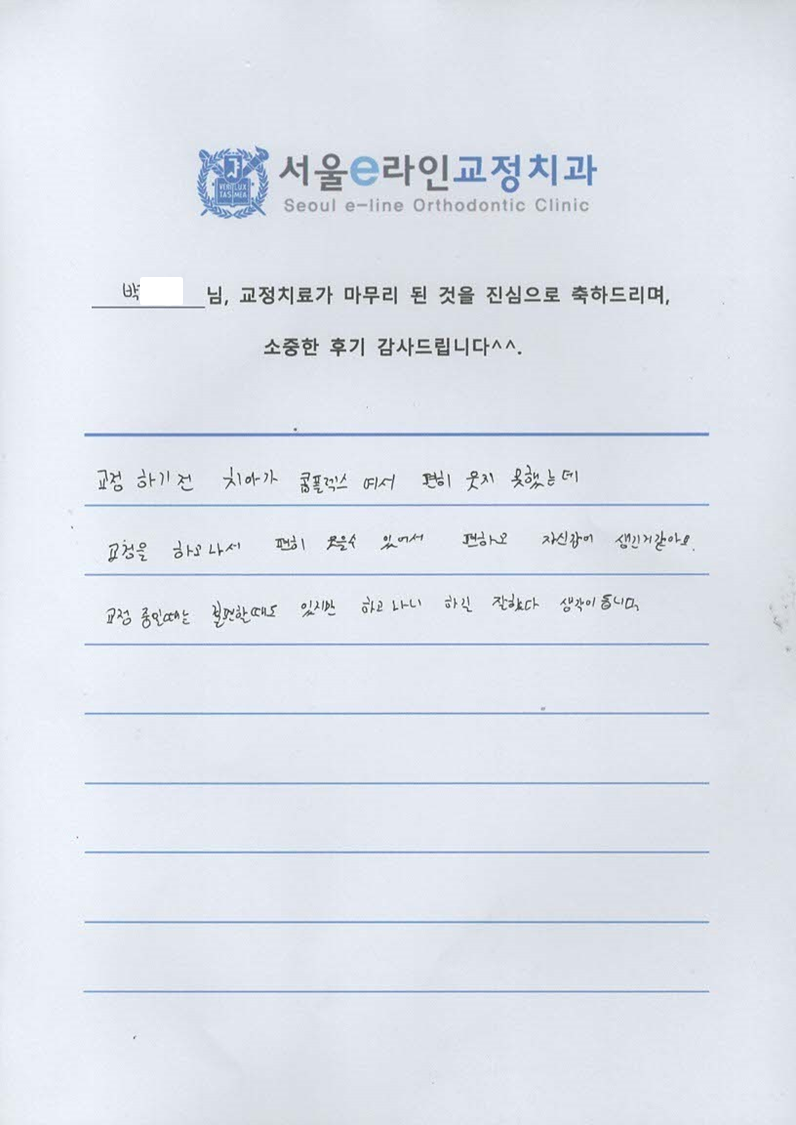 서울e라인교정치과
Seoul e-line Orthodontic Clinic
VERI LUX TAS MEA
박 님, 교정치료가 마무리 된 것을 진심으로 축하드리며,
소중한 후기 감사드립니다^^.
교정 하기전 치아가 콤플렉스 여서 편히 웃지 못했는데
교정을 하고나서 편히 웃을수 있어서 편하고 자신감이 생긴거같아요.
교정 중일때는 불편할때도 있지만 하고나니 하길 잘했다 생각이듭니다.